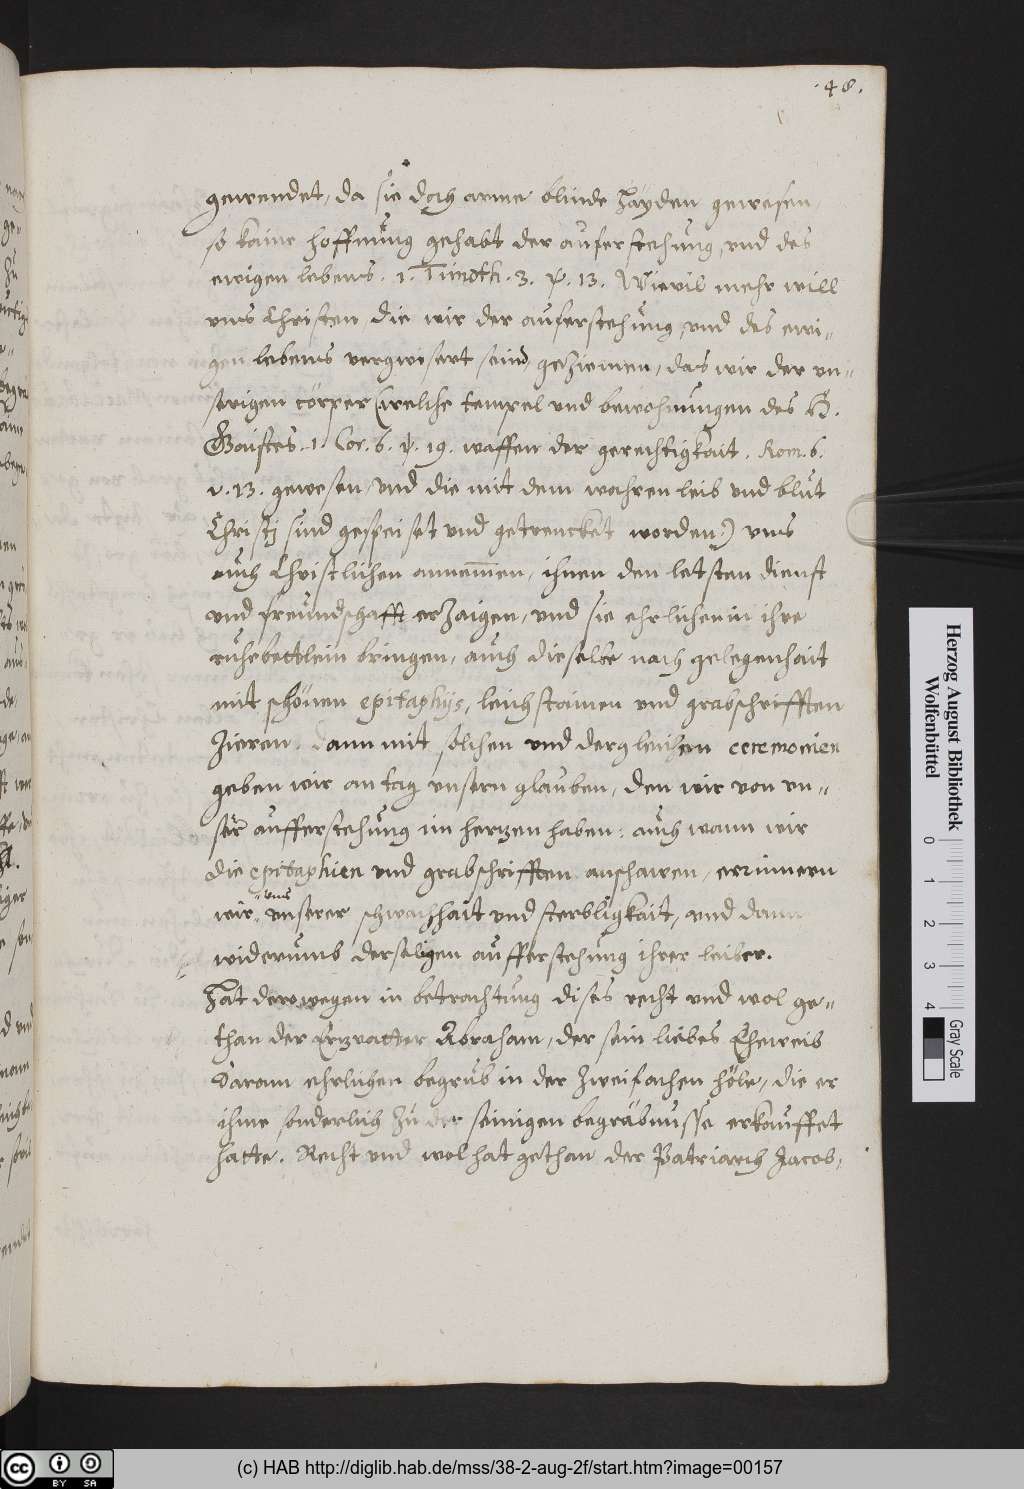 .48.
gewendet, da sie doch arme blinde Hayden gewesen,
so kaine hoffnung gehabt der auferstehung, vnd des
ewigen lebens. 1. Timoth. 3. v. 13. Wievil mehr will
vns Christen, die wir der auferstehung, vnd des ewi-
gen lebens vergwisert seind, geziemen, das wir der vn-
serigen cörper (welche tempel vnd bewohnungen des H.
Gaistes. 1. Cor. 6. v. 19. waffen der gerechtigkait. Rom. 6.
v. 13. gewesen, vnd die mit dem wahren leib vnd blut
Christj sind gespeiset vnd getrencket worden.) vns
auch Christlichen annemen, ihnen den letsten dienst
vnd freundschafft erzaigen, vnd sie ehrlichen in ihre
ruhebettlein bringen, auch dieselbe nach gelegenhait
mit schönen epitaphijs, leichstainen vnd grabschrifften
zieren. dann mit solchen vnd dergleichen ceremonien
geben wir an tag vnsern glauben, den wir von vn-
ser aufferstehung im hertzen haben: auch wann wir
die epitaphien vnd grabschrifften anschawen, erinnern
wir vns vnserer schwachhait vnd sterbligkait, vnd dann
widerumb derseligen aufferstehung ihrer leiber.
Hat derowegen in betrachtung dises recht vnd wol ge-
than der Ertzvatter Abraham, der sein liebes Eheweib
Saram ehrlichen begrub in der zweifachen höle, die er
ihme sonderlich zu der seinigen begräbnusse erkauffet
hatte. Recht vnd wol hat gethan der Patriarch Jacob,
Herzog August Bibliothek
Wolfenbüttel
0 1 2 3 4
Gray Scale
cc BY SA
(c) HAB http://diglib.hab.de/mss/38-2-aug-2f/start.htm?image=00157